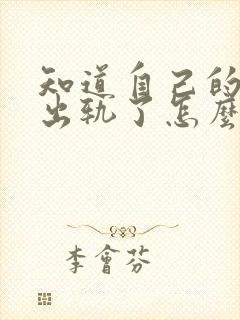 知道自己的
出轨了怎麼
李會芬